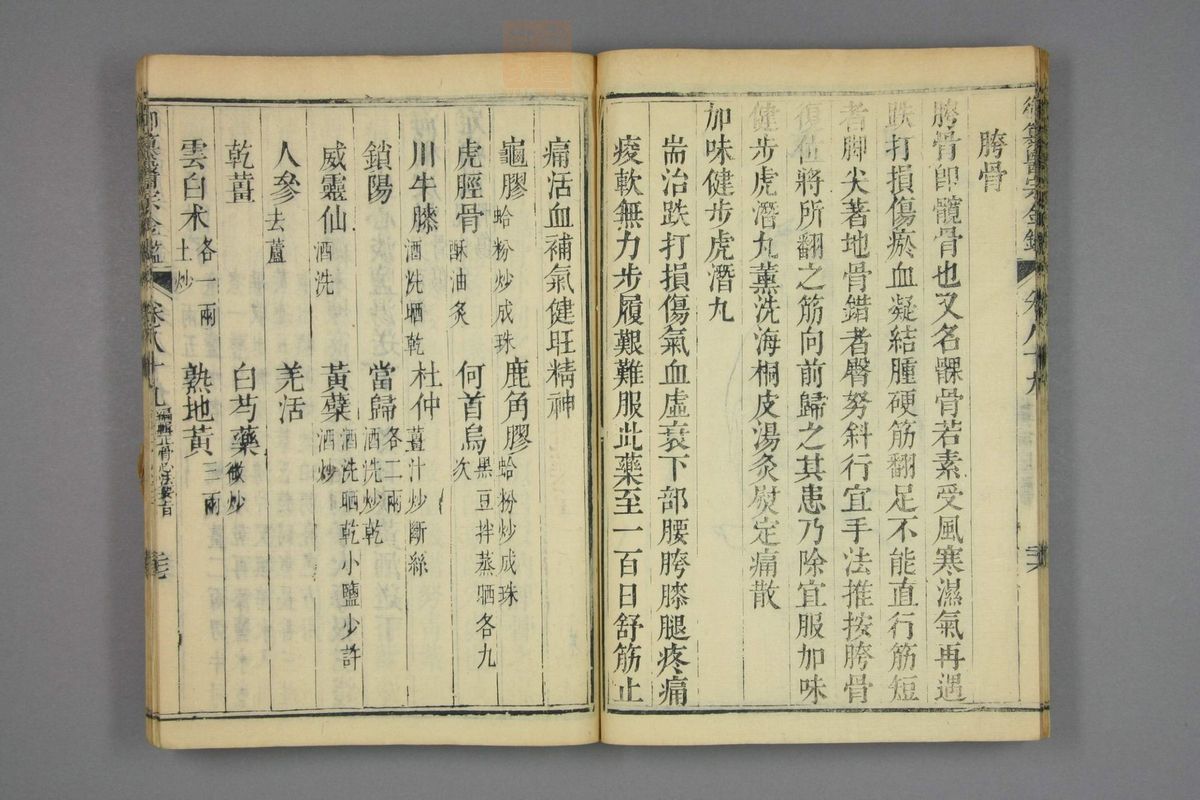 胯骨
胯骨卽髖骨也又名髁骨若素受風寒濕氣再遇
跌打損傷瘀血凝結腫硬筋翻足不能直行筋短
者脚尖著地骨錯者臀努斜行宜手法推按胯骨
復位將所翻之筋向前歸之其患乃除宜服加味
健步虎潛丸薰洗海桐皮湯灸熨定痛散
加味健步虎潛丸
耑治跌打損傷氣血虛衰下部腰胯膝腿疼痛
痠軟無力步履艱難服此藥至一百日舒筋止
痛活血補氣健旺精神
龜膠蛤粉炒成珠 鹿角膠蛤粉炒成珠
虎脛骨酥油炙 何首烏黑豆拌蒸晒各九次
川牛膝酒洗晒乾 杜仲薑汁炒斷絲
鎖陽 當歸各二兩酒洗炒乾
威靈仙酒洗 黃蘗酒洗晒乾小鹽少許酒炒
人參去蘆 羌活
乾薑 白芍藥微炒
雲白术各一兩土炒 熟地黃三兩
御纂醫宗金鑑 卷八十九